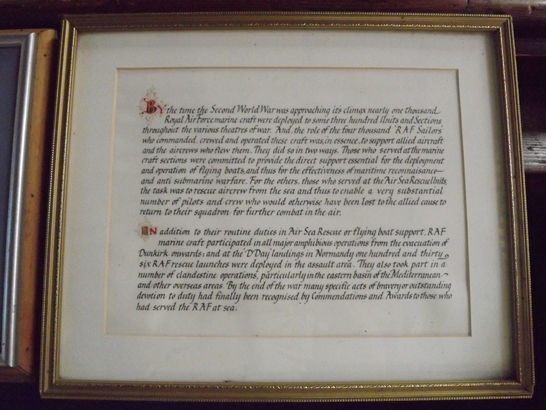 By the time the Second World War was approaching its climax nearly one thousand
Royal Air Force marine craft were deployed to some three hundred Units and Sections
throughout the various theatres of war. And, the role of the four thousand 'RAF Sailors'
who commanded, crewed and operated these craft was, in essence, to support allied aircraft
and the aircrews who flew them. They did so in two ways. Those who served at the marine
craft sections were committed to provide the direct support essential for the deployment
and operation of flying boats, and thus for the effectiveness of maritime reconnaisance-
and anti submarine warfare. For the others, those who served at the Air Sea Rescue Units,
the task was to rescue aircrew from the sea and thus to enable a very substantial
number of pilots and crew who would otherwise have been lost to the allied cause to
return to their squadron for further combat in the air.
In addition to their routine duties in Air Sea Rescue or flying boat support, RAF
marine craft participated in all major amphibious operations from the evacuation of
Dunkirk onwards: and at the 'D'Day landings in Normandy one hundred and thirty
six RAF rescue launches were deployed in the assault area. They also took part in a
number of clandestine operations, particularly in the eastern basin of the Mediterranean-
and other overseas areas. By the end of the war many specific acts of bravery or outstanding
devotion to duty had finally been recognised by Commendations and Awards to those who
had served the RAF at sea.